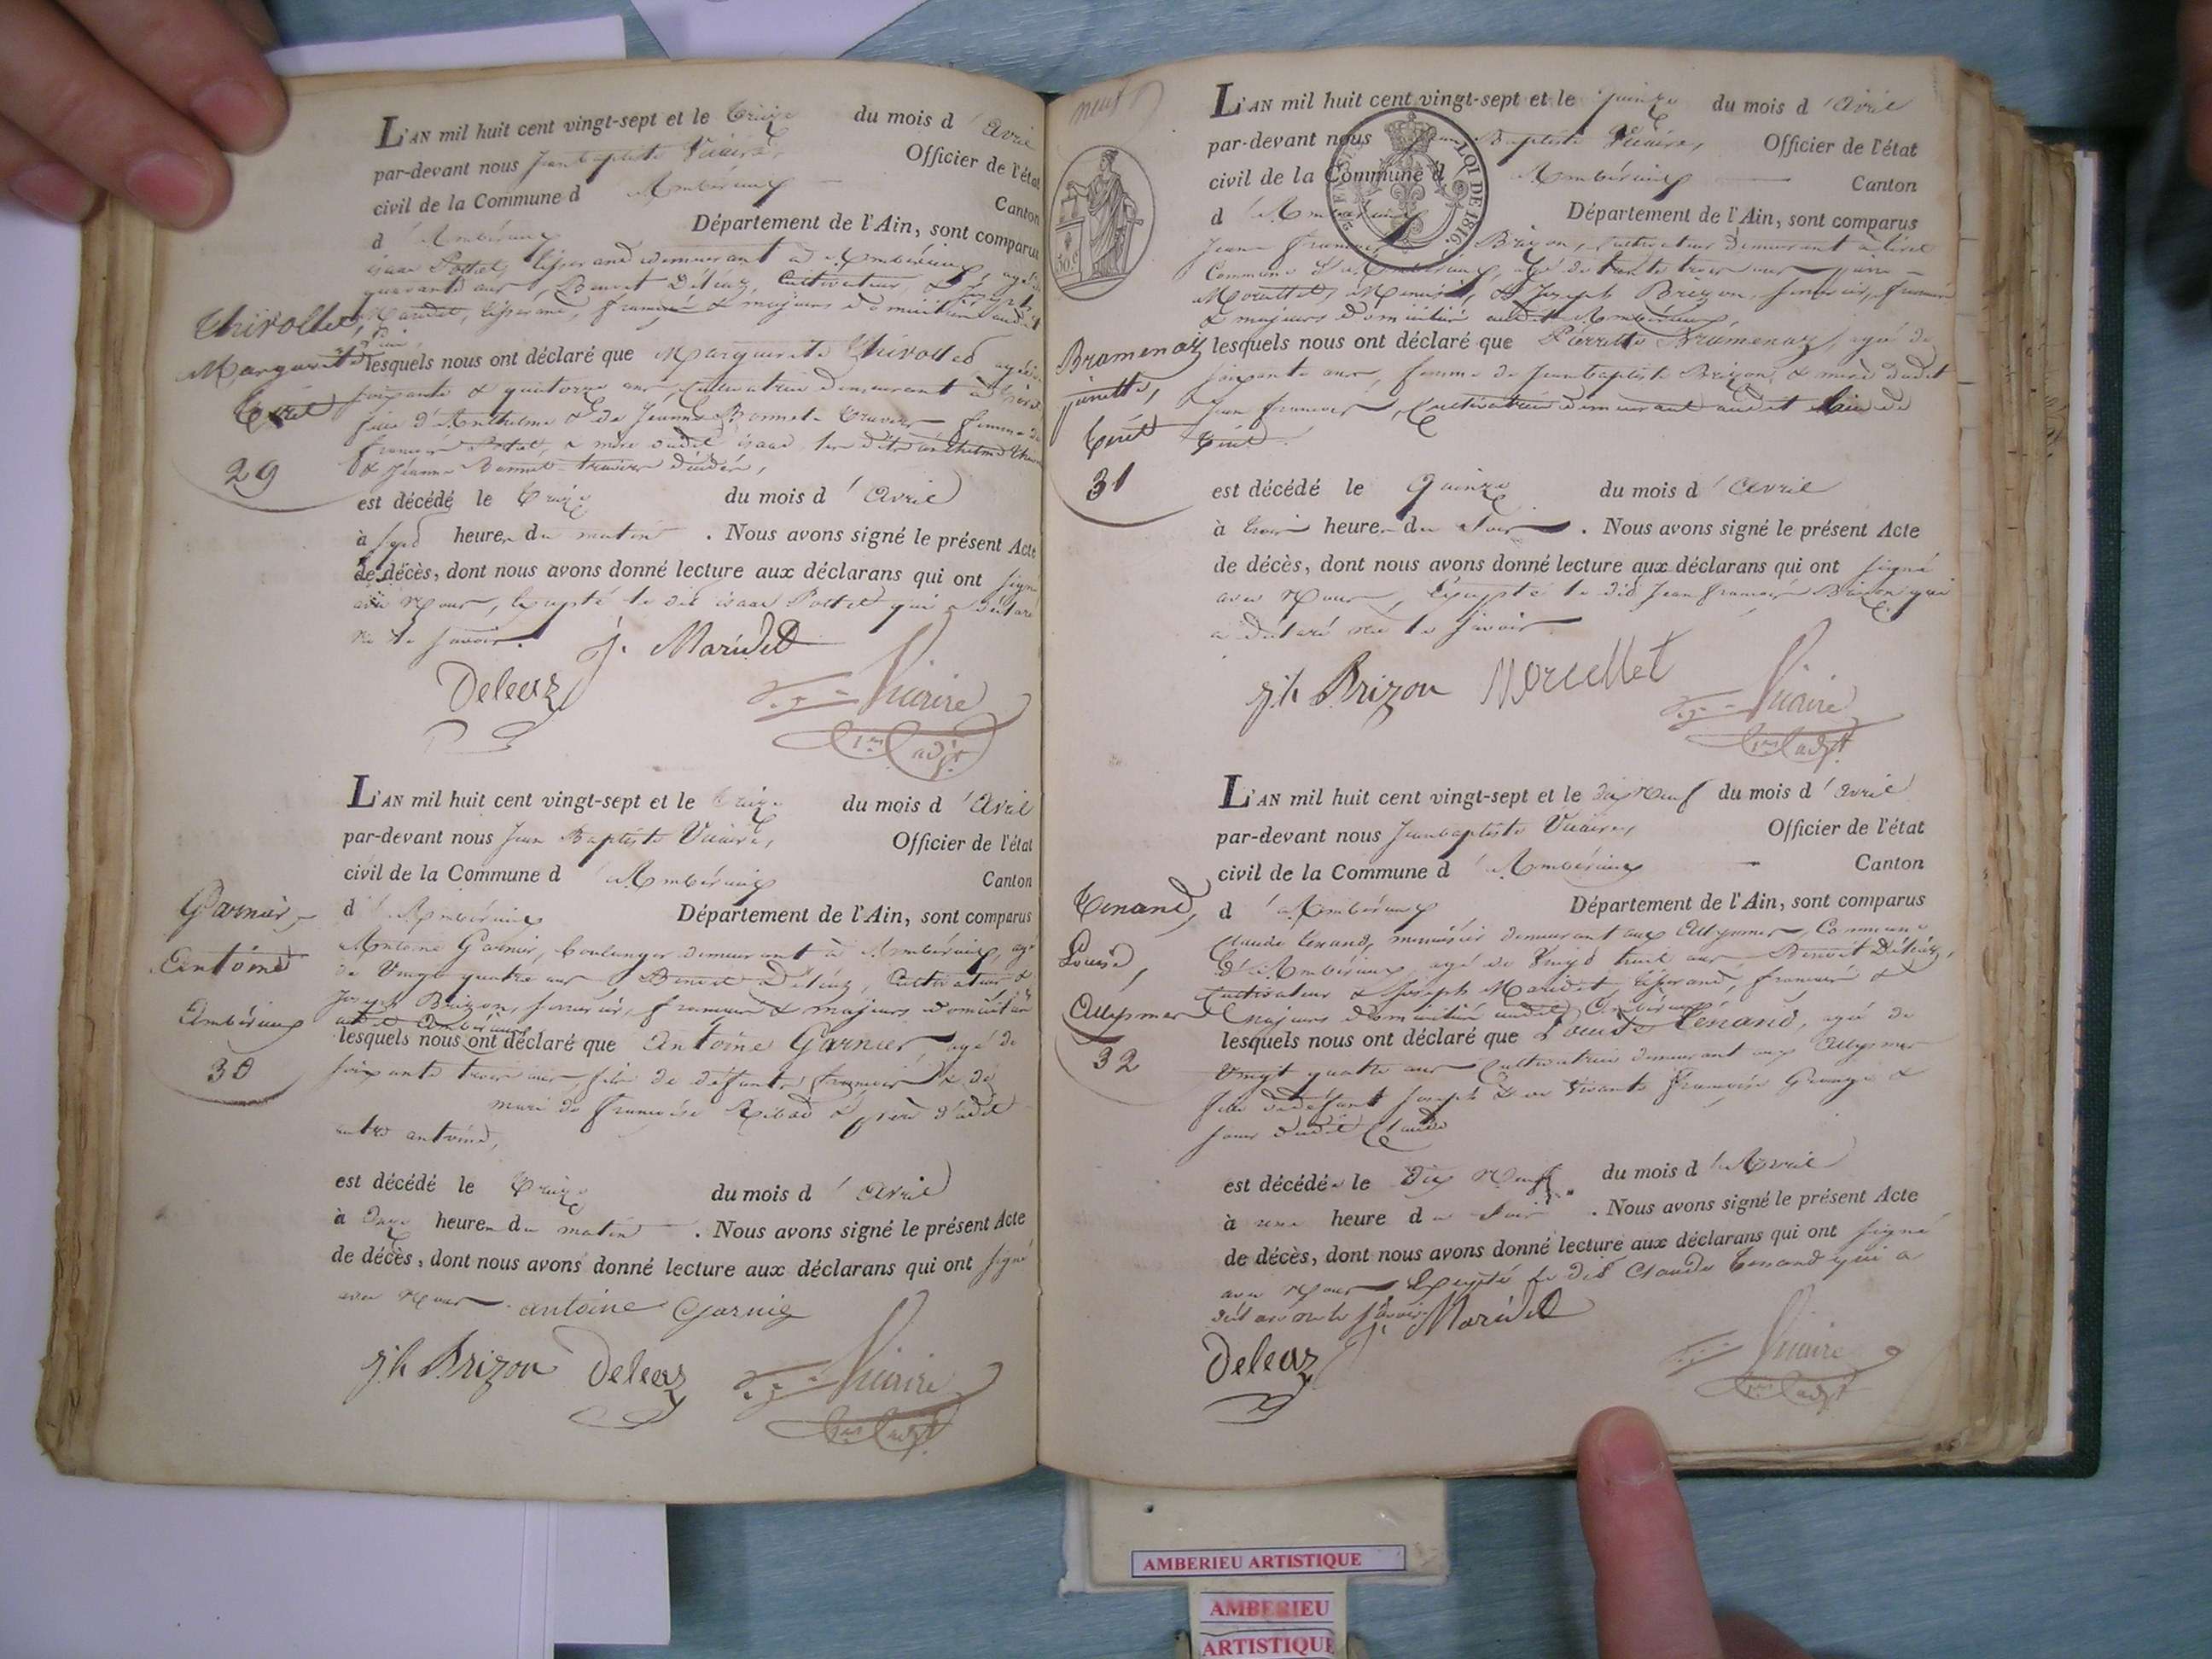 L'AN mil huit cent vingt-sept et le treize du mois d'avril
par-devant nous Jean baptiste Vicaire, Officier de l'état
civil de la Commune d'Ambérieux Canton
d'Ambérieux Département de l'Ain, sont comparus
isaac Portet, tisserand demeurant à Ambérieux, agé de
quarante ans, Benoit Déléaz, Cultivateur, & joseph
Maridet, tisserand, français & majeurs domiciliés
Thirollet,
Marguerite
Tiret
29
lesquels nous ont déclaré que Marguerite Thirollet agée de
soixante & quatorze ans, Cultivatrice demeurant à tiret
fille d'Anthelme & de Jeanne Bonnet-Travers femme de
françois Portet, & mère dudit isaac, les dits anthelme
& Jeanne Bonnet-travers décédés,
est décédé le treize du mois d'avril
à sept heures du matin. Nous avons signé le présent Acte
de décès, dont nous avons donné lecture aux déclarans qui ont signé
avec Nous, Excepté le dit isaac Portet qui a déclaré
ne le savoir. J. Maridet
Deleaz Vicaire
1er adjt
L'AN mil huit cent vingt-sept et le treize du mois d'avril
par-devant nous Jean Baptiste Vicaire, Officier de l'état
civil de la Commune d'Ambérieux Canton
d'Ambérieux Département de l'Ain, sont comparus
Garnier,
Antoine
Ambérieux
30
Antoine Garnier, boulanger demeurant à Ambérieux, agé
de Vingt quatre ans, Benoit Déléaz, Cultivateur &
Joseph Brizon, serrurier, français & majeurs domiciliés
audit Ambérieux
lesquels nous ont déclaré que Antoine Garnier agé de
soixante trois ans, fils de défunts françois & de
mari de françoise Ribod & père dudit
autre antoine,
est décédé le treize du mois d'avril
à onze heures du matin. Nous avons signé le présent Acte
de décès, dont nous avons donné lecture aux déclarans qui ont signé
avec Nous antoine Garnie
Jh Brizon Deleaz Vicaire
1er adjt
neuf
L'AN mil huit cent vingt-sept et le quinze du mois d'avril
par-devant nous Jean Baptiste Vicaire, Officier de l'état
civil de la Commune d'Ambérieux Canton
d'Ambérieux Département de l'Ain, sont comparus
LOI DE 1816
50 c
Jean françois Brizon, Cultivateur demeurant à tiret
Commune d'Ambérieux, agé de trente trois ans, pierre
Morellet, Menuisier, & Joseph Brizon, serrurier, français
& majeurs domiciliés audit Ambérieux,
Bramenaz
pierrette,
tiret
31
lesquels nous ont déclaré que Pierrette Bramenaz, agé de
soixante ans, femme de Jean baptiste Brizon, & mère dudit
Jean françois, Cultivatrice demeurant audit lieu de
tiret.
est décédé le quinze du mois d'avril
à trois heures du soir. Nous avons signé le présent Acte
de décès, dont nous avons donné lecture aux déclarans qui ont signé
avec Nous, Excepté le dit Jean françois Brizon qui
a déclaré ne le savoir
Jh Brizon Morellet Vicaire
1er adjt
L'AN mil huit cent vingt-sept et le dix neuf du mois d'avril
par-devant nous Jean baptiste Vicaire, Officier de l'état
civil de la Commune d'Ambérieux Canton
d'Ambérieux Département de l'Ain, sont comparus
Tenand,
Louise,
Allymes
32
Claude Tenand, menuisier demeurant aux Allymes, Commune
d'Ambérieux, agé de Vingt huit ans, Benoit Déléaz,
Cultivateur & Joseph Maridet, tisserand, français &
majeurs domiciliés audit Ambérieux
lesquels nous ont déclaré que Louise Tenand, agé de
Vingt quatre ans Cultivatrice demeurant aux Allymes
fille de défunt Joseph & de vivante françoise Grange &
soeur dudit Claude
est décédée le dix Neuf du mois d'Avril
à une heure du soir. Nous avons signé le présent Acte
de décès, dont nous avons donné lecture aux déclarans qui ont signé
avec Nous Excepté le dit Claude Tenand qui a
déclaré ne le savoir J. Maridet
Deleaz Vicaire
1er adjt
AMBERIEU ARTISTIQUE
AMBERIEU
ARTISTIQUE